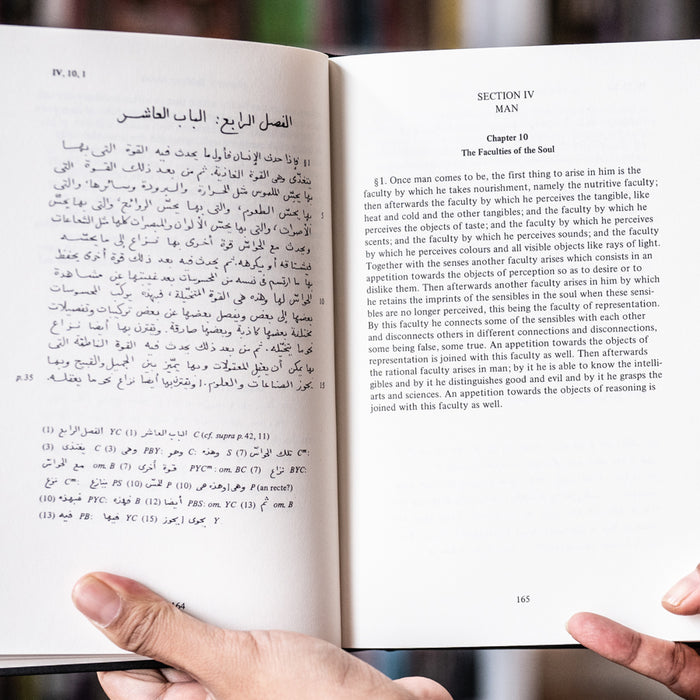 IV, 10, 1
الفصل الرابع: الباب العاشر
§1 فإذا حدث الإنسان فأول ما يحدث فيه القوة التي بها
يتغذّى وهي القوة الغاذية، ثم من بعد ذلك القوة التي
بها يحسّ الملموس مثل الحرارة والبرودة وسائرها، والتي
بها يحسّ الطعوم، والتي بها يحسّ الروائح، والتي بها يحسّ
5
الأصوات، والتي بها يحسّ الألوان والمبصرات كلها مثل الشعاعات
ويحدث مع الحواسّ قوة أخرى بها نزاع إلى ما يحسّه
فيشتاقه أو يكرهه. ثم يحدث فيه بعد ذلك قوة أخرى يحفظ
بها ما ارتسم في نفسه من المحسوسات بعد غيبتها عن مشاهدة
الحواسّ لها وهذه هي القوة المتخيّلة، فبهذه يركّب المحسوسات
10
بعضها إلى بعض ويفصل بعضها عن بعض تركيبات وتفصيلات
مختلفة بعضها كاذبة وبعضها صادقة. ويقترن بها أيضا نزاع
نحو ما يتخيّله. ثم من بعد ذلك يحدث فيه القوة الناطقة التي
بها يمكن أن يعقل المعقولات وبها يميّز بين الجميل والقبيح وبها
p.35 يحوز الصناعات والعلوم. ويقترن بها أيضا نزاع نحو ما يعقله. 15
(1) الفصل الرابع YC (1) الباب العاشر C (cf. supra p.42, 11)
164
SECTION IV
MAN
Chapter 10
The Faculties of the Soul
§1. Once man comes to be, the first thing to arise in him is the
faculty by which he takes nourishment, namely the nutritive faculty;
then afterwards the faculty by which he perceives the tangible, like
heat and cold and the other tangibles; and the faculty by which he
perceives the objects of taste; and the faculty by which he perceives
scents; and the faculty by which he perceives sounds; and the faculty
by which he perceives colours and all visible objects like rays of light.
Together with the senses another faculty arises which consists in an
appetition towards the objects of perception so as to desire or to
dislike them. Then afterwards another faculty arises in him by which
he retains the imprints of the sensibles in the soul when these sensi-
bles are no longer perceived, this being the faculty of representation.
By this faculty he connects some of the sensibles with each other
and disconnects others in different connections and disconnections,
some being false, some true. An appetition towards the objects of
representation is joined with this faculty as well. Then afterwards
the rational faculty arises in man; by it he is able to know the intelli-
gibles and by it he distinguishes good and evil and by it he grasps the
arts and sciences. An appetition towards the objects of reasoning is
joined with this faculty as well.
165